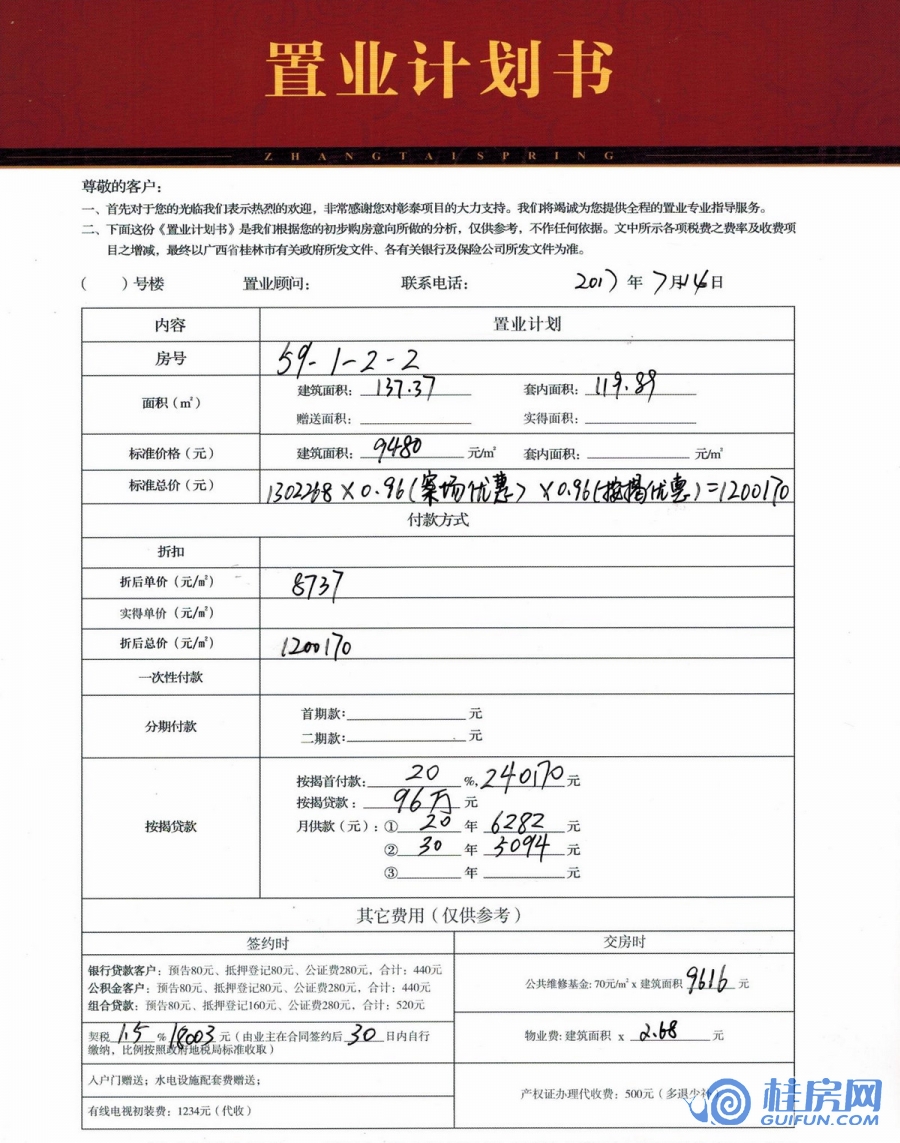 置业计划书
ZHANGTAISPRING
尊敬的客户：
一、首先对于您的光临我们表示热烈的欢迎，非常感谢您对彰泰项目的大力支持。我们将竭诚为您提供全程的置业专业指导服务。
二、下面这份《置业计划书》是我们根据您的初步购房意向所做的分析，仅供参考，不作任何依据。文中所示各项税费之费率及收费项
目之增减，最终以广西省桂林市有关政府所发文件、各有关银行及保险公司所发文件为准。
（ ）号楼 置业顾问： 联系电话： 2017 年 7月14日
内容 置业计划
房号 59-1-2-2
面积（㎡） 建筑面积：137.37 套内面积：119.89
赠送面积： 实得面积：
标准价格（元） 建筑面积：9480 元/㎡ 套内面积： 元/㎡
标准总价（元） 1302268×0.96(案场优惠)×0.96(按揭优惠)=1200170
付款方式
折扣
折后单价（元/㎡） 8737
实得单价（元/㎡）
折后总价（元/㎡） 1200170
一次性付款
分期付款 首期款： 元
二期款： 元
按揭贷款 按揭首付款：20 %，240170 元
按揭贷款：96万 元
月供款（元）：① 20 年 6282 元
② 30 年 5094 元
③ 年 元
其它费用（仅供参考）
签约时 交房时
银行贷款客户：预告80元、抵押登记80元、公证费280元，合计：440元
公积金客户：预告80元、抵押登记80元、公证费280元，合计：440元
组合贷款：预告80元、抵押登记160元、公证费280元，合计：520元
公共维修基金：70元/㎡ x 建筑面积 9616 元
契税 1.5 % 18003 元（由业主在合同签约后 30 日内自行
缴纳，比例按照政府地税局标准收取）
物业费：建筑面积 x 2.68 元
入户门赠送；水电设施配套费赠送；
有线电视初装费：1234元（代收）
产权证办理代收费：500元（多退少补）
桂房网
GUIFUN.COM